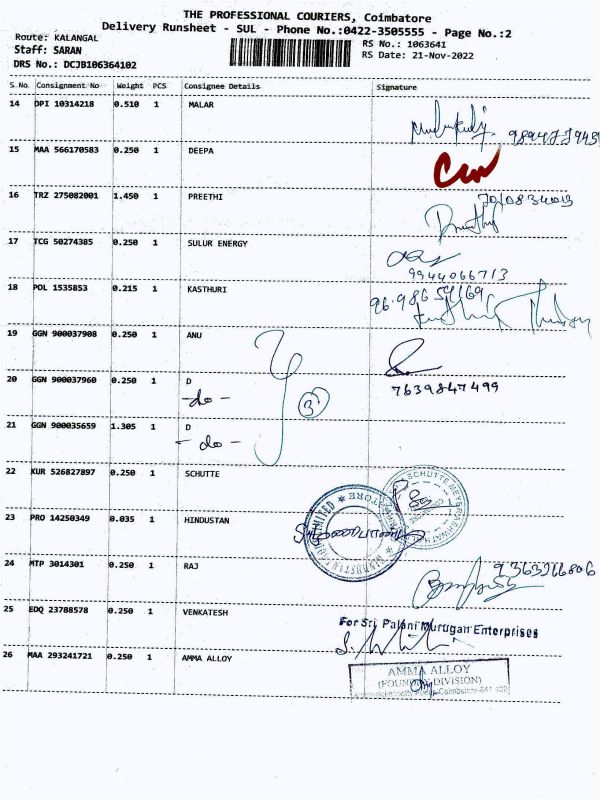 THE PROFESSIONAL COURIERS, Coimbatore
Delivery Runsheet - SUL - Phone No.:0422-3505555 - Page No.:2
Route: KALANGAL
RS No.: 1063641
Staff: SARAN
RS Date: 21-Nov-2022
DRS No.: DCJB106364102
S.No. Consignment No Weight PCS Consignee Details Signature
14 DPI 10314218 0.510 1 MALAR
15 MAA 566170583 0.250 1 DEEPA
16 TRZ 275082001 1.450 1 PREETHI
7010834013
17 TCG 50274385 0.250 1 SULUR ENERGY
9944066713
18 POL 1535853 0.215 1 KASTHURI
19 GGN 900037908 0.250 1 ANU
7639847499
20 GGN 900037960 0.250 1 D
-do-
3
21 GGN 900035659 1.305 1 D
-do-
22 KUR 526827897 0.250 1 SCHUTTE
SCHUTTE
23 PRO 14250349 0.035 1 HINDUSTAN
LIMITED
24 MTP 3014301 0.250 1 RAJ
25 EDQ 23788578 0.250 1 VENKATESH
For Sri Palani Murugan Enterprises
26 MAA 293241721 0.250 1 AMMA ALLOY
AMMA ALLOY
(FOUNDRY DIVISION)
Coimbatore-641 402